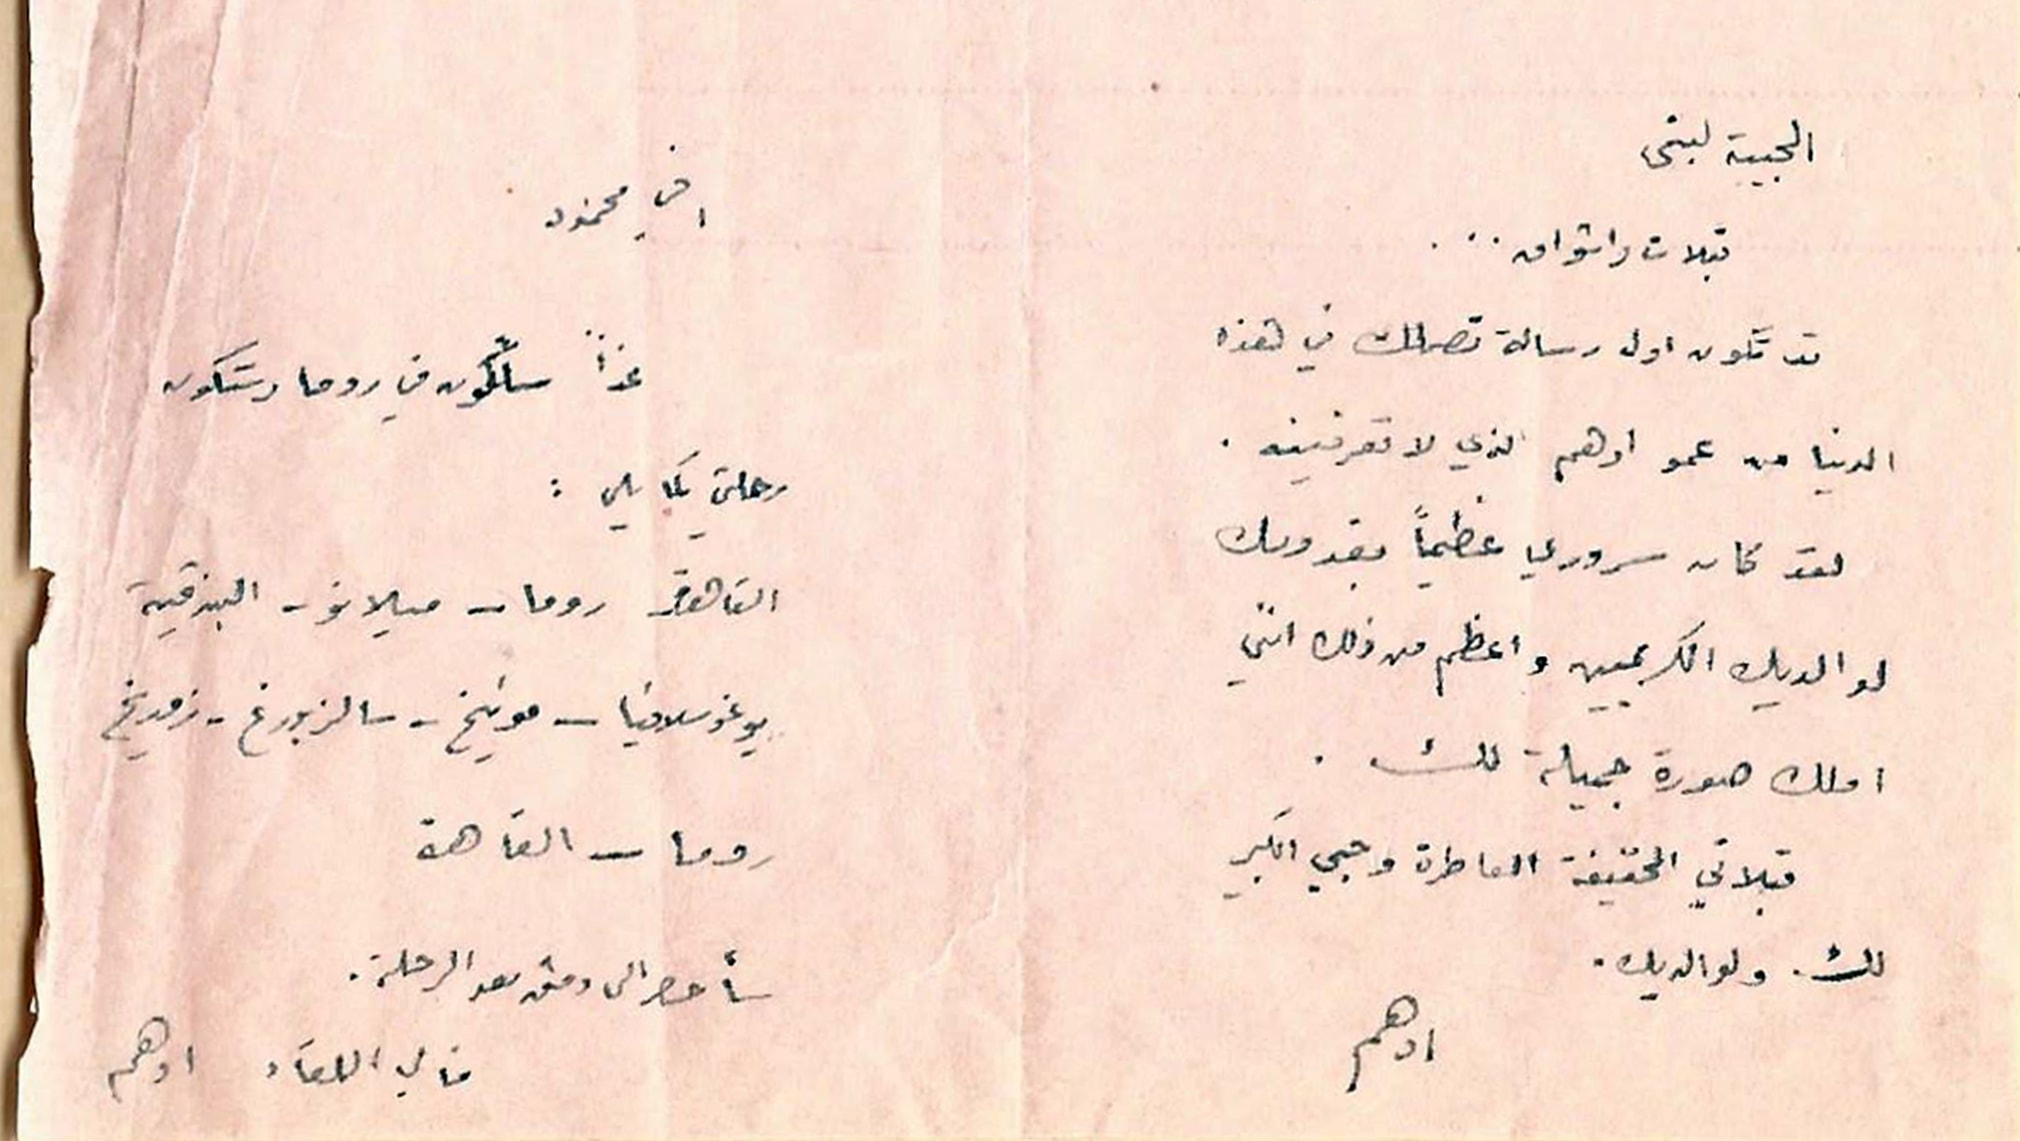 الحبيبة لبنى
قبلات واشواق...
قد تكون اول رسالة تصلك في هذه
الدنيا من عمو ادهم الذي لا تعرفينه.
لقد كان سروري عظيماً بقدومك
لوالديك الكريمين واعظم من ذلك انني
املك صورة جميلة لك.
قبلاتي العاطرة وحبي الكبير
لك. ولوالديك.
ادهم
اخي محمود
غداً سأكون في روما وستكون
رحلتي كما يلي :
القاهرة روما - ميلانو - البندقية
يوغوسلافيا - مونيخ - سالزبورغ - زوريخ
روما - القاهرة
سأحضر الى دمشق بعد الرحلة.
فالى اللقاء ادهم